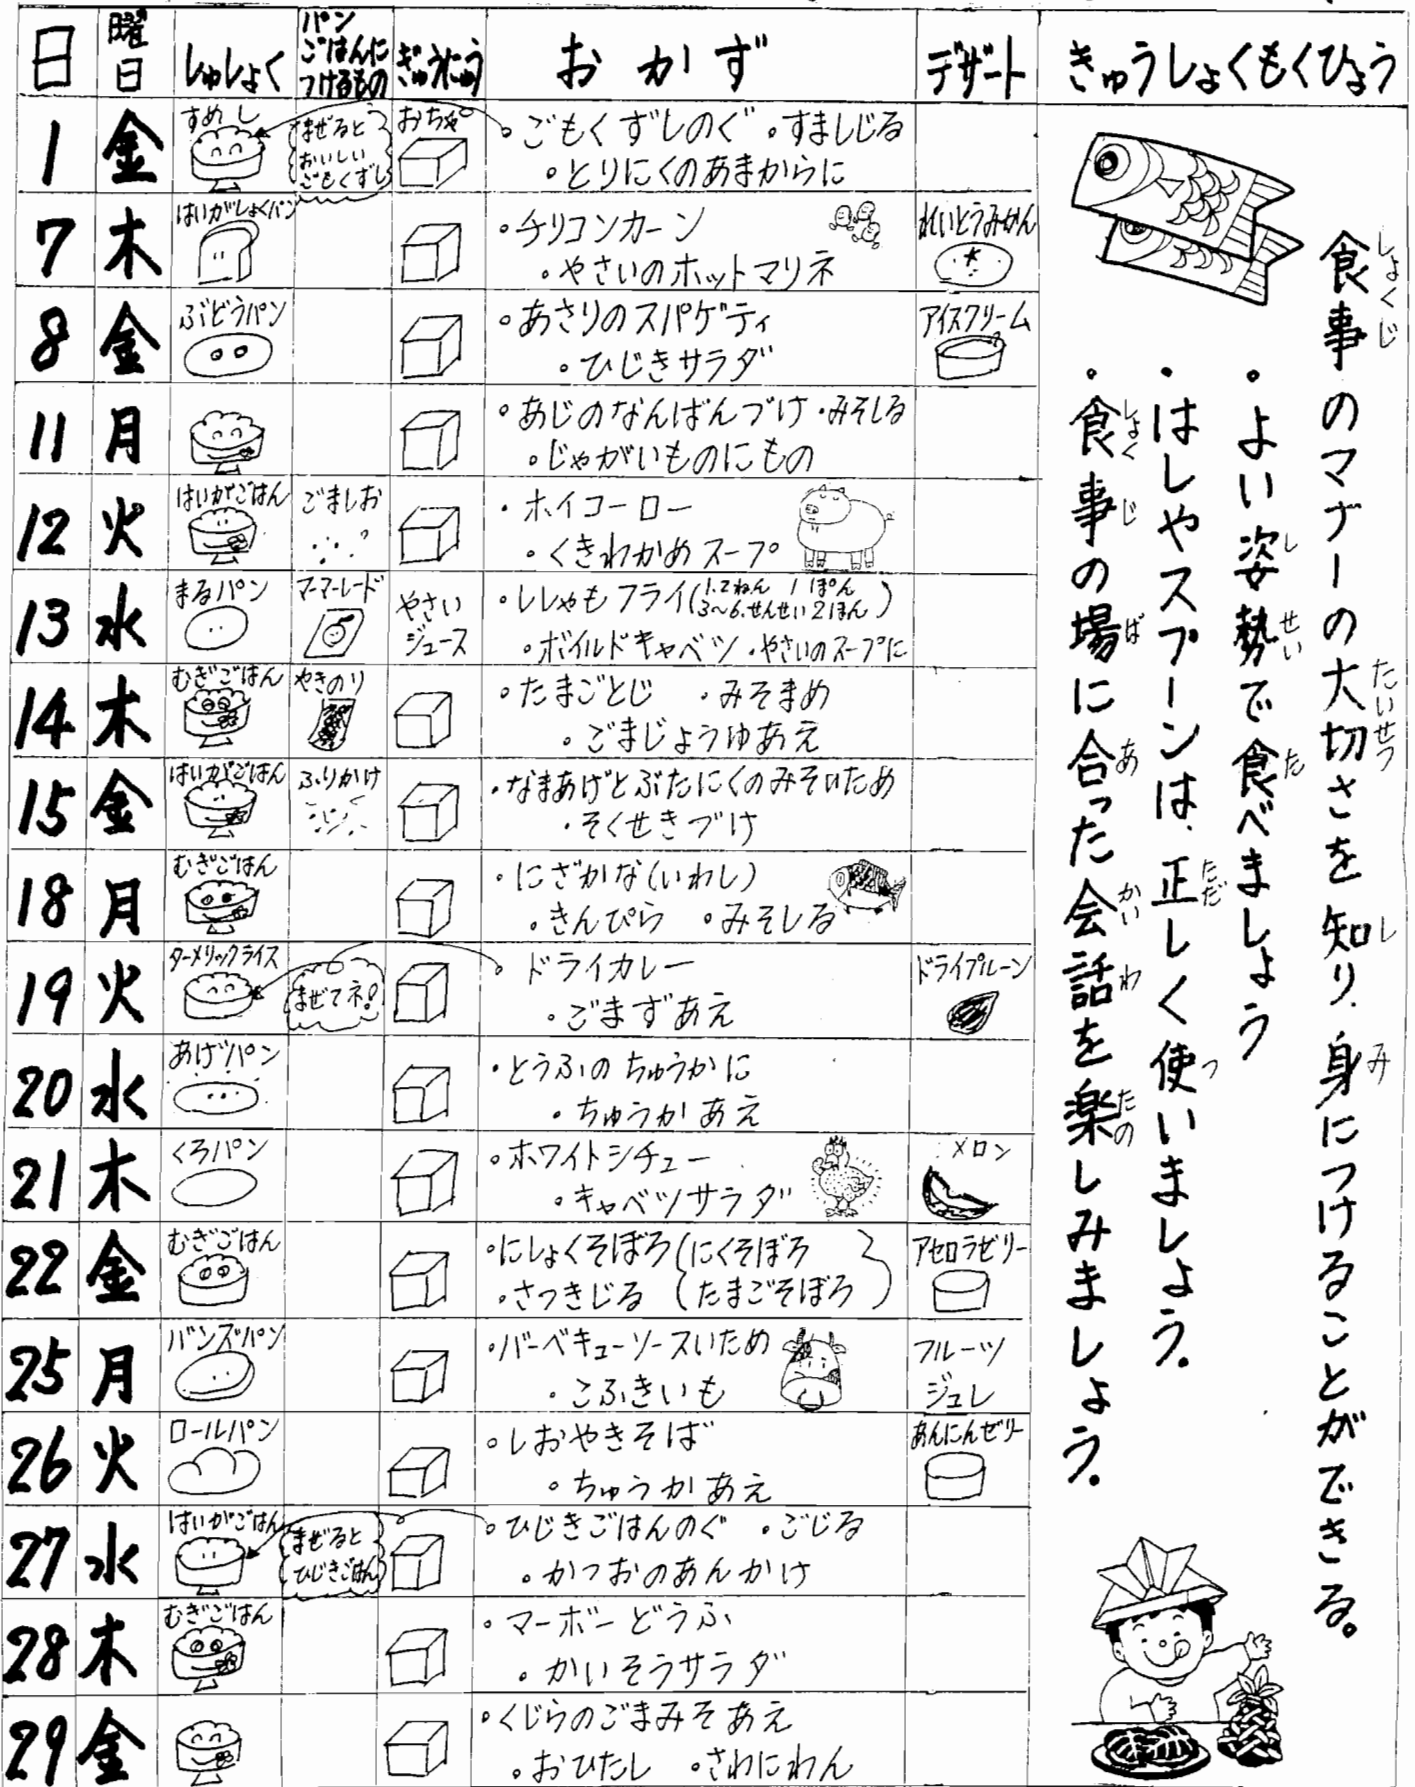 日
曜日
しゅしょく
パン
ごはんに
つけるもの
ぎゅうにゅう
おかず
デザート
きゅうしょくもくひょう
1
金
すめし
まぜると
おいしい
ごもくずし
おちゃ
・ごもくずしのぐ ・すましじる
・とりにくのあまからに
7
木
はいがしょくパン
・チリコンカーン
・やさいのホットマリネ
れいとうみかん
8
金
ぶどうパン
・あさりのスパゲティ
・ひじきサラダ
アイスクリーム
11
月
・あじのなんばんづけ ・みそしる
・じゃがいものにもの
12
火
はいがごはん
ごましお
・ホイコーロー
・くきわかめスープ
13
水
まるパン
マーマレード
やさい
ジュース
・ししゃもフライ(1.2ねん 1ぽん
3〜6.せんせい2ほん)
・ボイルドキャベツ ・やさいのスープに
14
木
むぎごはん
やきのり
・たまごとじ ・みそまめ
・ごまじょうゆあえ
15
金
はいがごはん
ふりかけ
・なまあげとぶたにくのみそいため
・そくせきづけ
18
月
むぎごはん
・にざかな(いわし)
・きんぴら ・みそしる
19
火
ターメリックライス
まぜてネ!
・ドライカレー
・ごまずあえ
ドライプルーン
20
水
あげパン
・とうふのちゅうかに
・ちゅうかあえ
21
木
くろパン
・ホワイトシチュー
・キャベツサラダ
メロン
22
金
むぎごはん
・にしょくそぼろ(にくそぼろ
・さつきじる (たまごそぼろ)
アセロラゼリー
25
月
バンズパン
・バーベキューソースいため
・こふきいも
フルーツ
ジュレ
26
火
ロールパン
・しおやきそば
・ちゅうかあえ
あんにんゼリー
27
水
はいがごはん
まぜると
ひじきごはん
・ひじきごはんのぐ ・ごじる
・かつおのあんかけ
28
木
むぎごはん
・マーボーどうふ
・かいそうサラダ
29
金
・くじらのごまみそあえ
・おひたし ・さわにわん
食事のマナーの大切さを知り、身につけることができる。
しょくじ
たいせつ
し
み
・よい姿勢で食べましょう
し
せい
た
・はしやスプーンは、正しく使いましょう。
ただ
つ
・食事の場に合った会話を楽しみましょう。
しょく
じ
ば
あ
かい
わ
たの